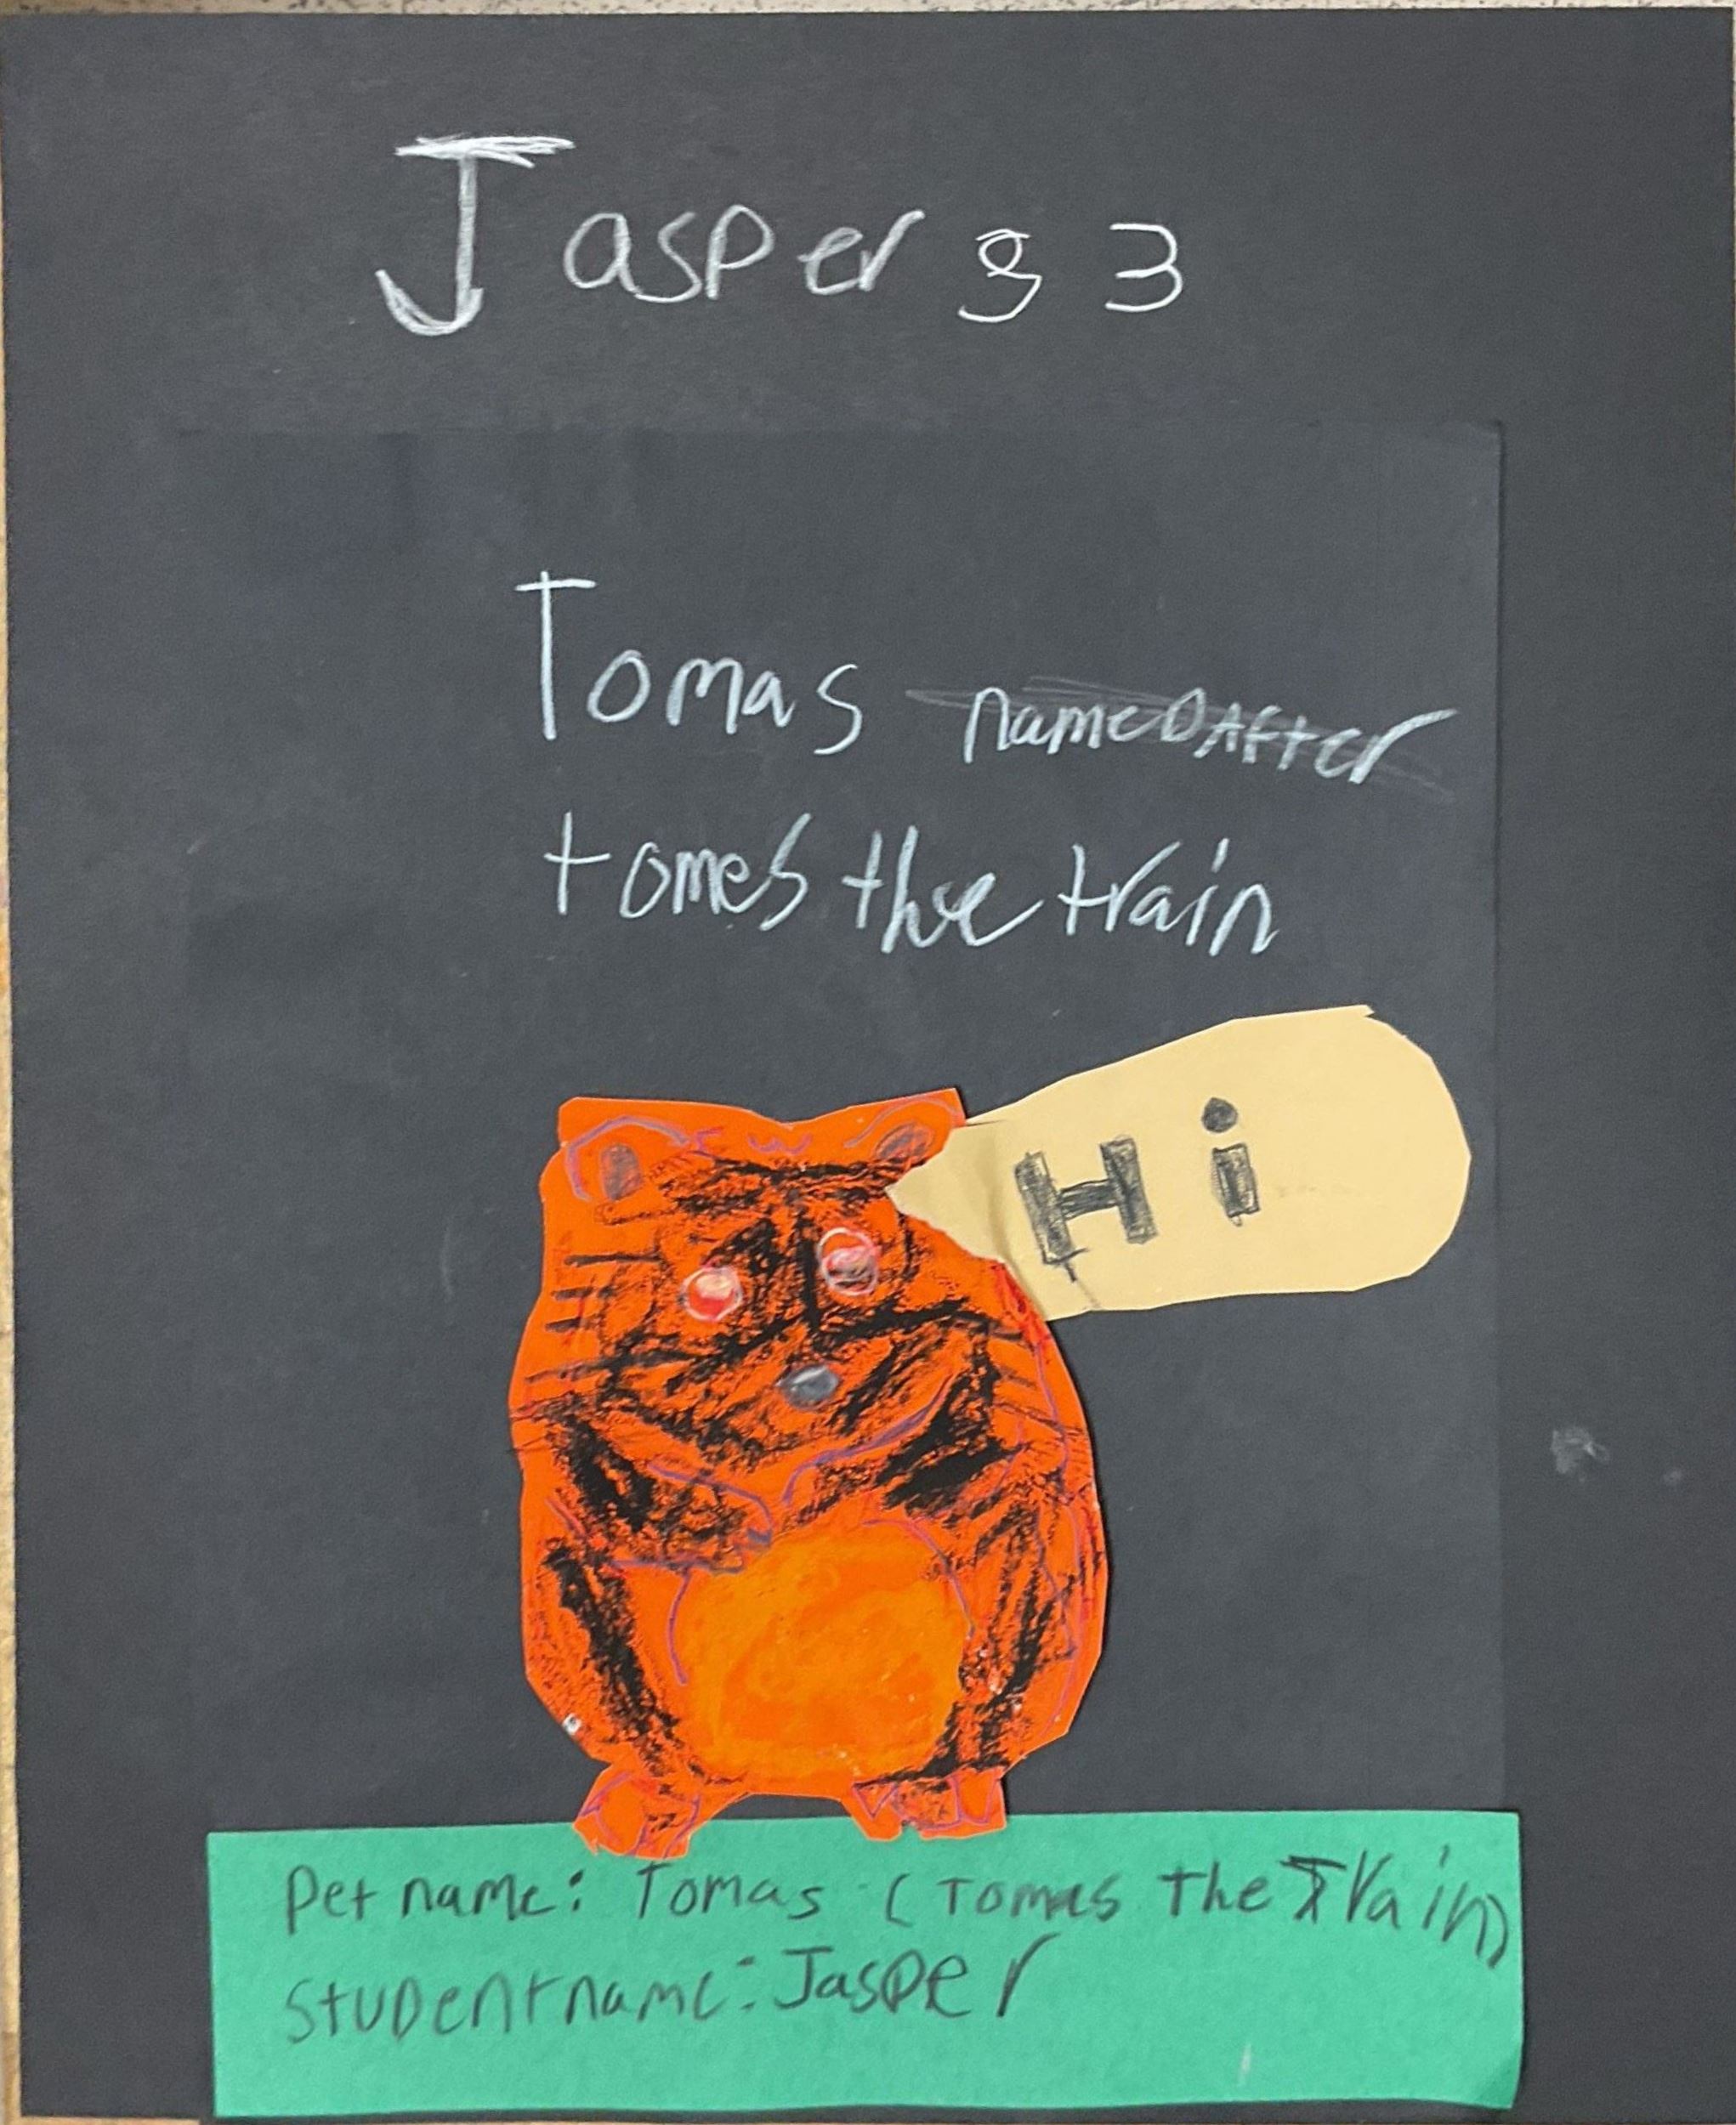 Jasper g 3
Tomas named After
tomes the train
Hi
Pet name: Tomas (Tomas the Train)
Student name: Jasper